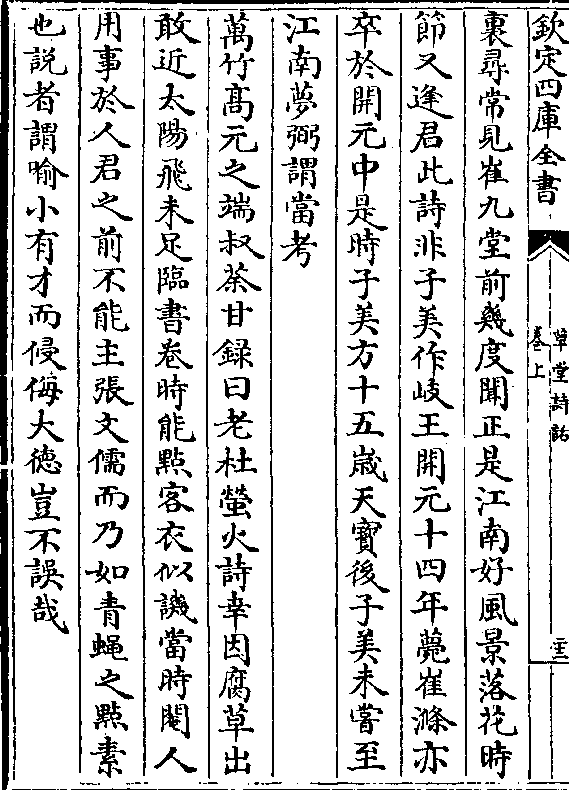 欽定四庫全書
草堂詩話
卷上
二三
裏尋常見崔九堂前幾度聞正是江南好風景落花時
節又逢君此詩非子美作岐王開元十四年薨崔滌亦
卒於開元中是時子美方十五歲天寶後子美未嘗至
江南夢弼謂當考
萬竹髙元之端叔荼甘録曰老杜螢火詩幸因腐草出
敢近太陽飛未足臨書卷時能㸃客衣似譏當時閹人
用事於人君之前不能主張文儒而乃如青蝇之㸃素
也説者謂喻小有才而侵侮大徳豈不誤哉